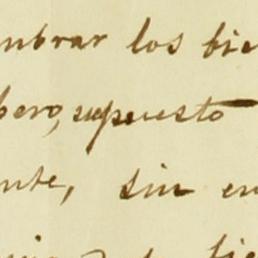 mbrar los bie
bero, supuesto
nte, sin en